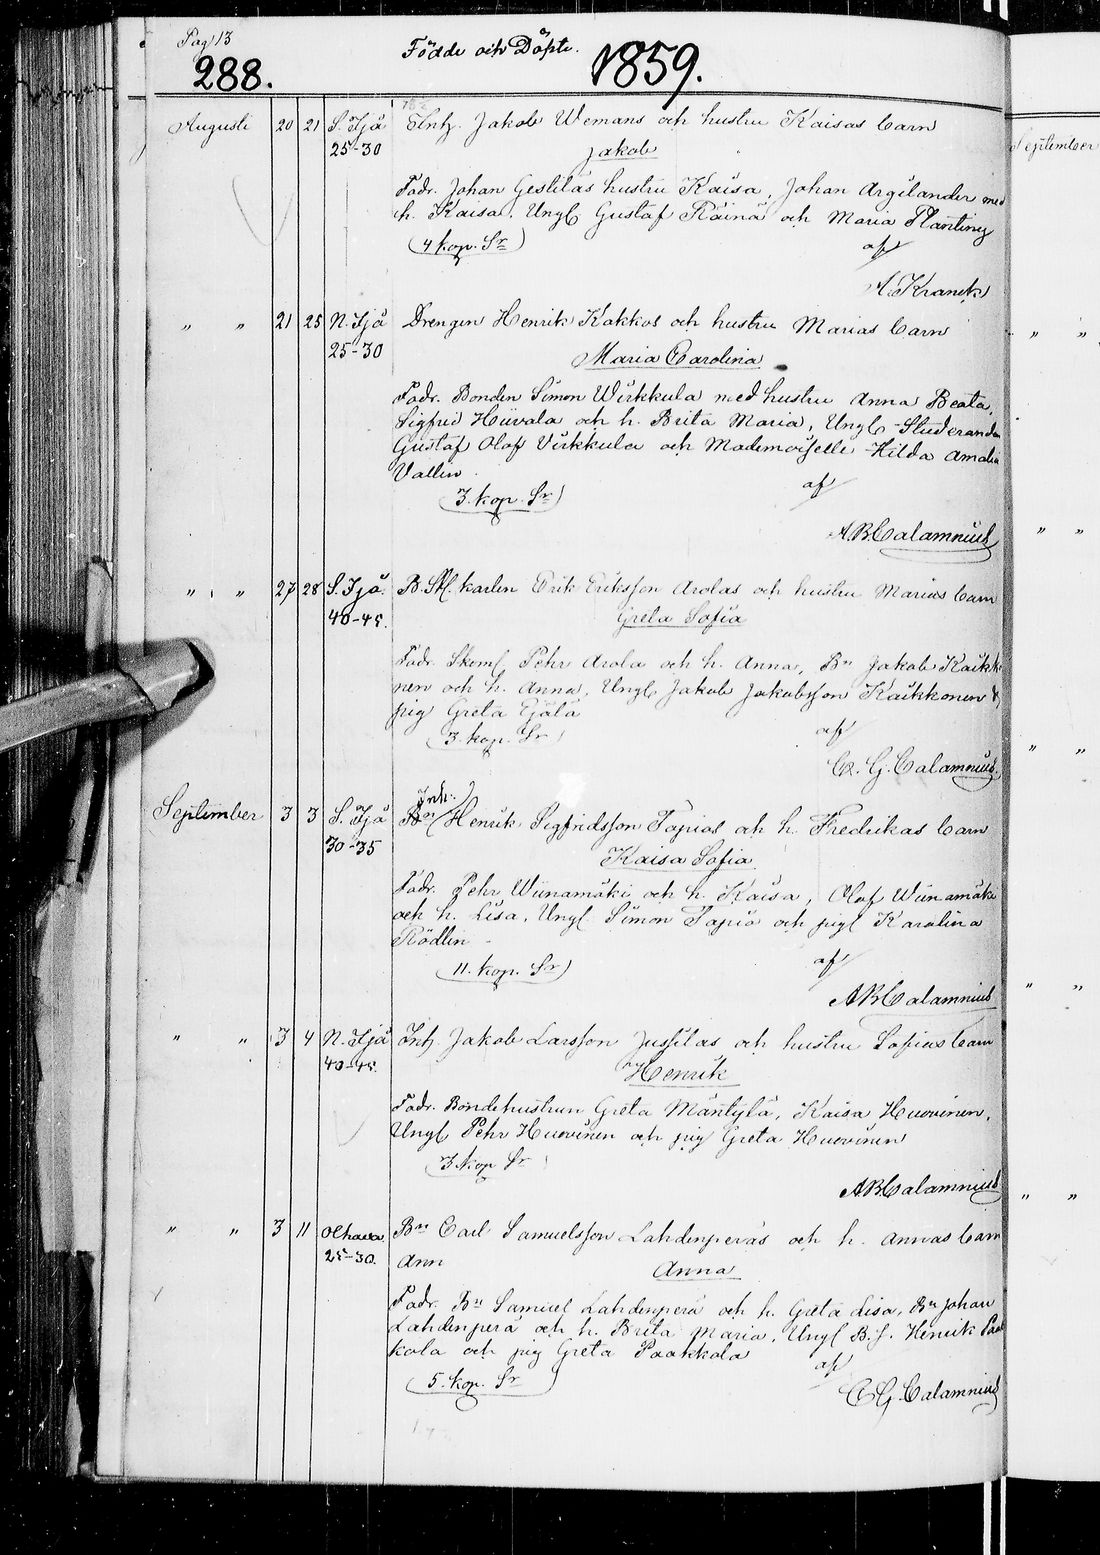 Pag 13
288.
Födde och Döpte.
1859.
Augusti 20 21 S. Ijå Inh. Jakob Wemans och hustru Kaisas barn
25-30 Jakob
Fadr. Johan Gestiläs hustru Kaisa, Johan Argilander med
h. Kaisa, Ungl Gustaf Räinä och Maria Planting
(4 kop. Sr) af
A. Kranck
" " 21 25 N. Ijå Drengen Henrik Kakkos och hustru Marias barn
25-30 Maria Carolina
Fadr. Bonden Simon Wirkkula med hustru Anna Beata,
Sigfrid Hiivala och h. Brita Maria, Ungl Studeranden
Gustaf Olof Virkkula och Mademoiselle Hilda Amalia
Vallin
(3. kop. Sr) af
A.B. Calamnius
" " 27 28 S. Ijå. B. Skl. karlen Erik Eriksson Arolas och hustru Marias barn
40-45. Greta Sofia
Fadr. Skoml Pehr Arola och h. Anna, Bn Jakob Kaikko
nen och h. Anna, Ungl Jakob Jakobsson Kaikkonen &
pig Greta Ejälä
(3. kop. Sr) af
C. G. Calamnius.
Inh.
September 3 3 S. Ijå Bn Henrik Sigfridsson Tapios och h. Fredrikas barn
30-35 Kaisa Sofia
Fadr. Pehr Wiinamäki och h. Kaisa, Olof Wiinamäki
och h. Lisa, Ungl. Simon Tapio och pigl Karolina
Rödlin
(11. kop. Sr) af
AB Calamnius
" " 3 4 N. Ijå Inh. Jakob Larsson Jussilas och hustru Sofias barn
40-45. Henrik
Fadr. Bondehustrun Greta Mäntylä, Kaisa Huovinen,
Ungl Pehr Huovinen och pig Greta Huovinen
(3 kop Sr)
AB Calamnius
" " 3 11 Olhava Bn Carl Samuelsson Lahdenperäs och h. Annas barn
25-30. Ann Anna
Fadr. Bn Samuel Lahdenperä och h. Greta Lisa, Bn Johan
Lahdenperä och h. Brita Maria, Ungl B.s. Henrik Paak
kola och pig Greta Paakkola
(5. kop. Sr) af
C G. Calamnius
September
" "
" "
" "
" "
" "